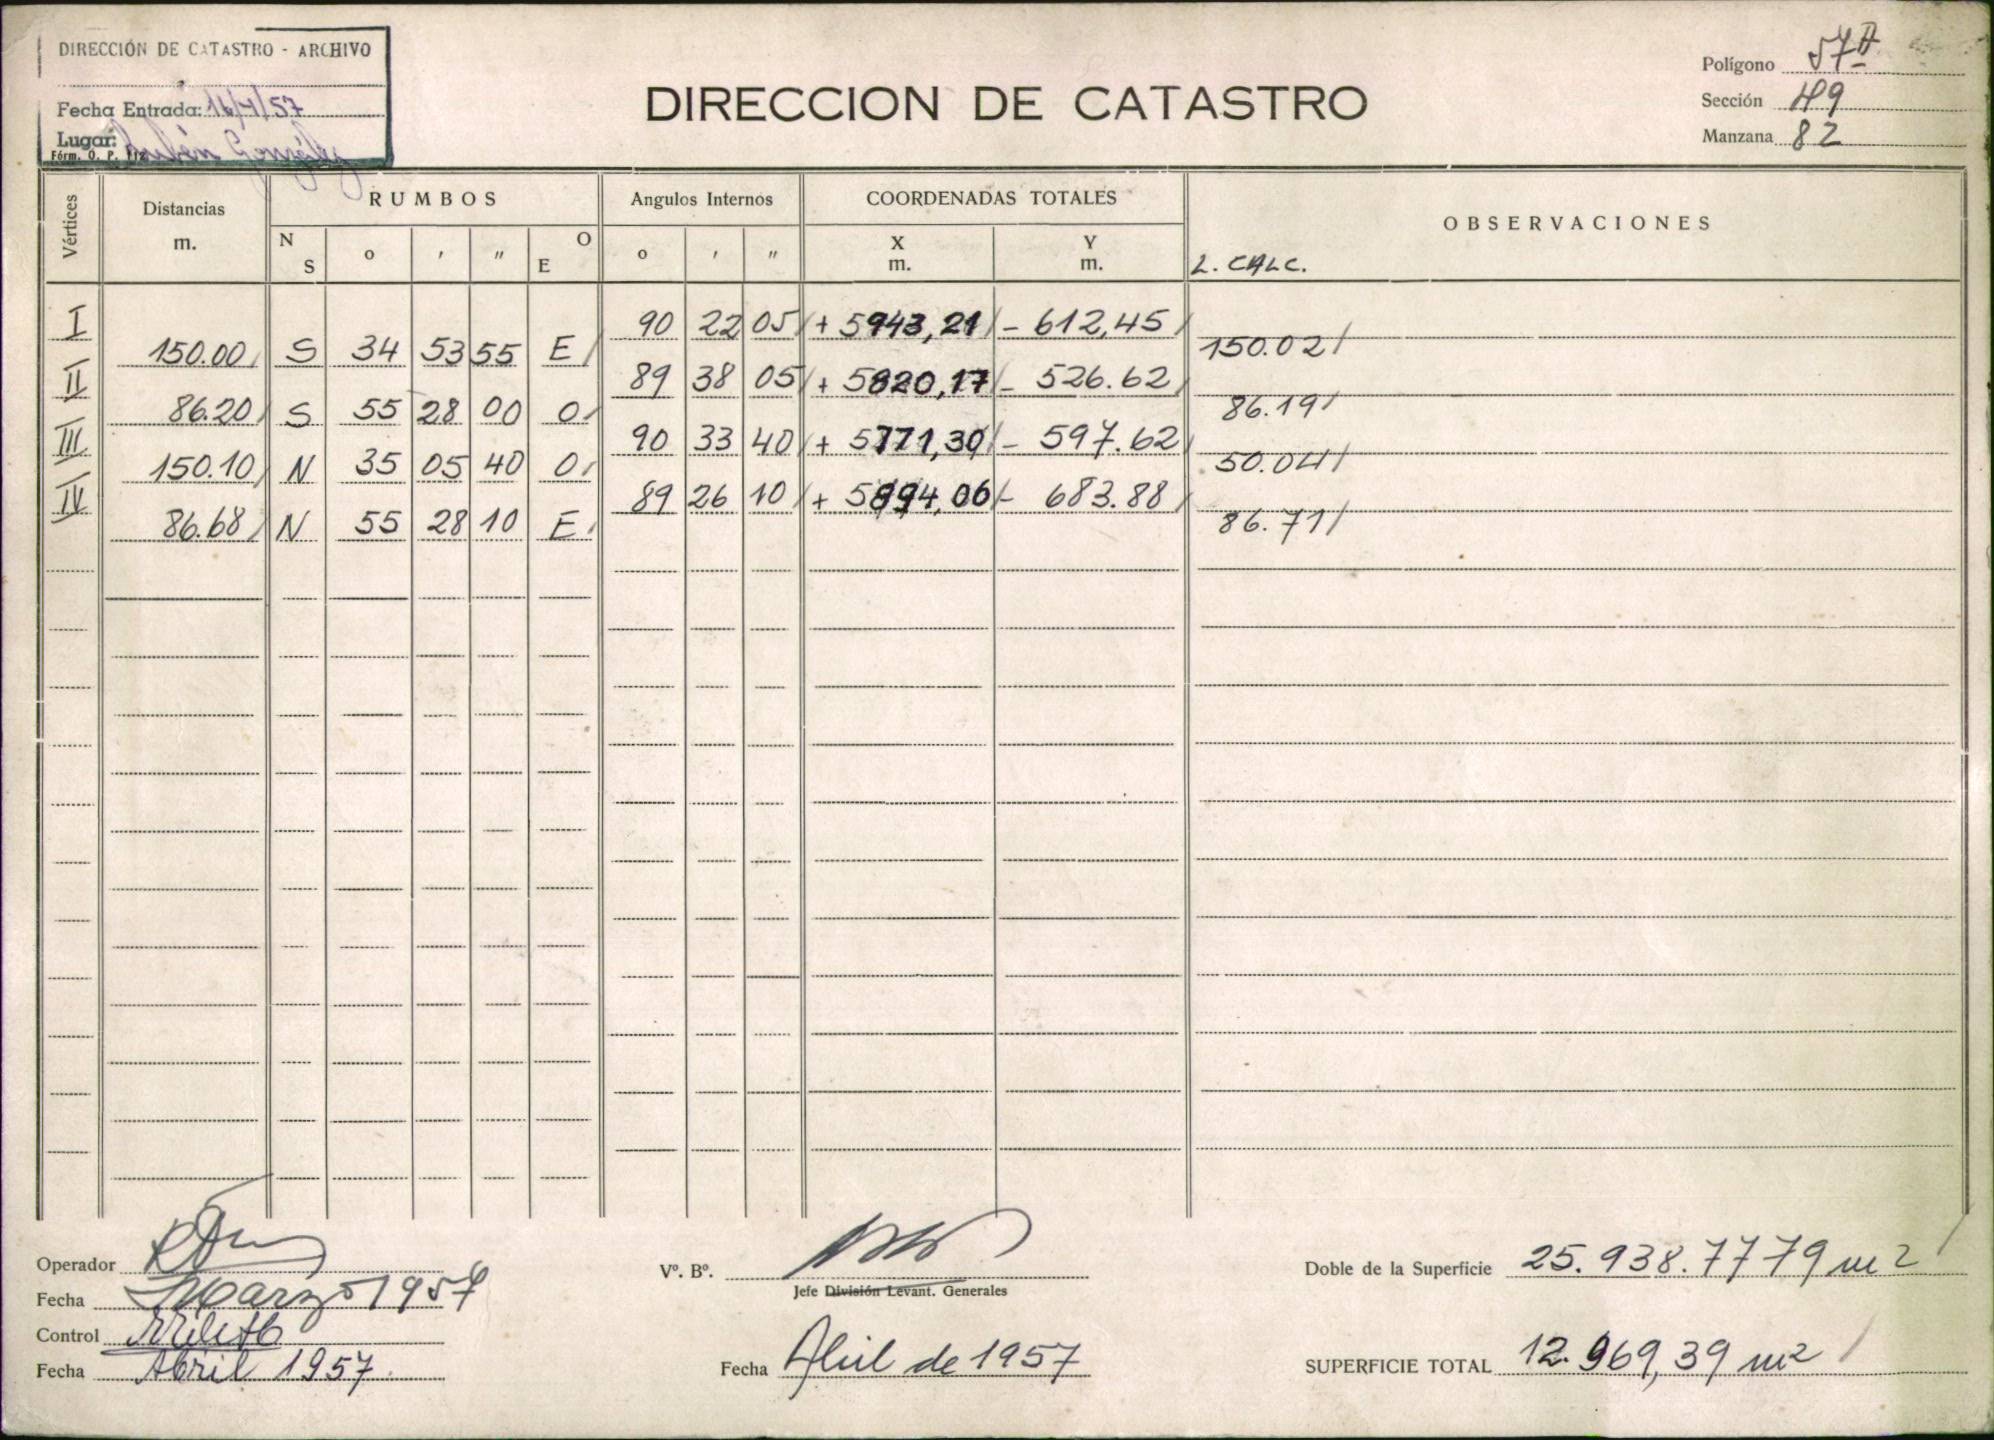 DIRECCIÓN DE CATASTRO - ARCHIVO
Fecha Entrada: 16/4/57
Lugar: Rubén González
Fórm. O. P. 112
DIRECCION DE CATASTRO
Polígono 57 A
Sección 49
Manzana 82
Vértices Distancias m. RUMBOS N S o ' " O E Angulos Internos o ' " COORDENADAS TOTALES X m. Y m. OBSERVACIONES
L. CALC.
I 90 22 05 + 5943,21 - 612,45
150.00 S 34 53 55 E 150.02
II 89 38 05 + 5820,17 - 526.62
86.20 S 55 28 00 O 86.19
III 90 33 40 + 5771,30 - 597.62
150.10 N 35 05 40 O 50.04
IV 89 26 10 + 5894,06 - 683.88
86.68 N 55 28 10 E 86.71
Operador
Fecha Marzo 1957
Control
Fecha Abril 1957.
Vº. Bº.
Jefe División Levant. Generales
Fecha Abril de 1957
Doble de la Superficie 25.938.7779 m2
SUPERFICIE TOTAL 12.969,39 m2